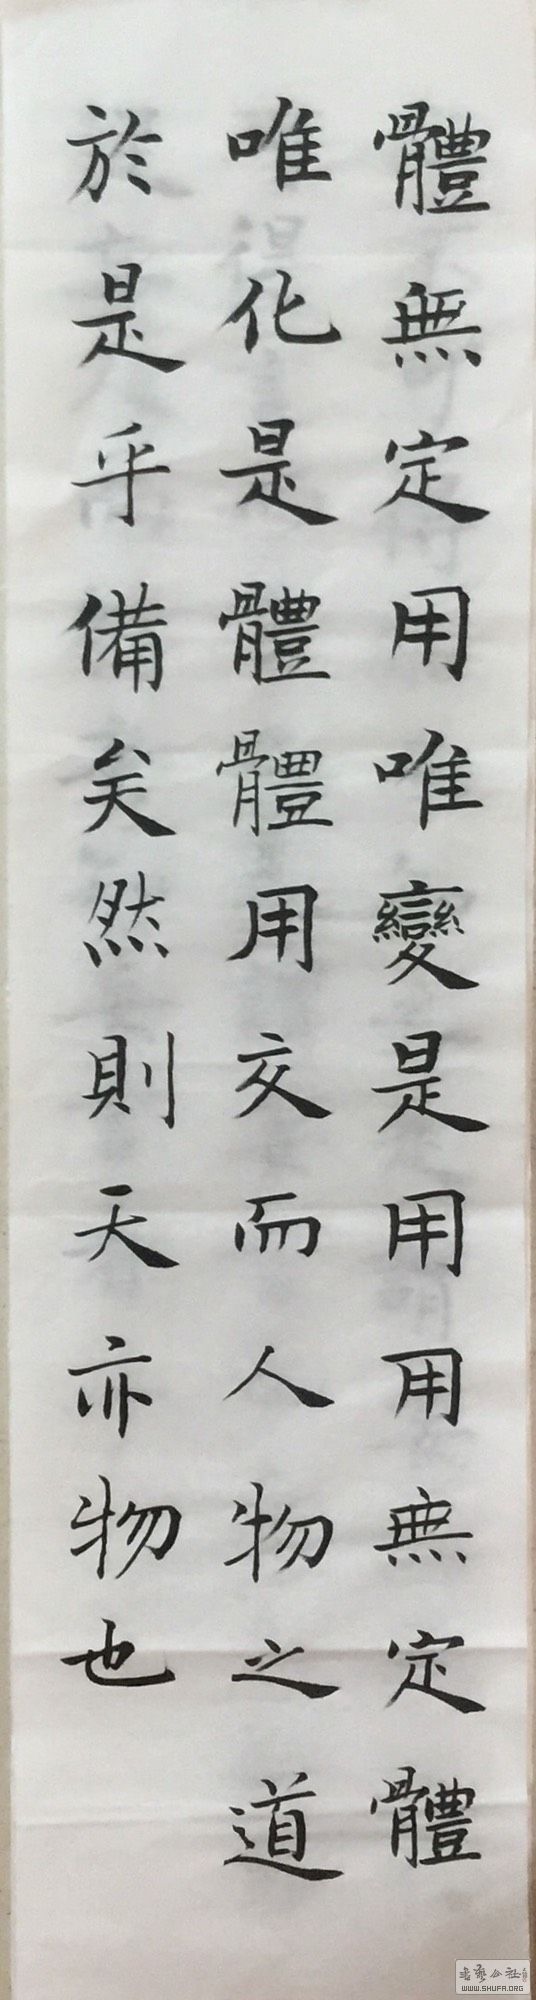 體無定用唯變是用用無定體
唯化是體體用交而人物之道
於是乎備矣然則天亦物也
WWW.SHUFA.ORG